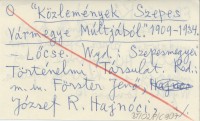 "Közlemények Szepes
Vármegye Múltjából" 1909-1924.
- Lőcse. Wyd: Szepesmegyei
Történelmi Társulat. Red:
m.in. Förster Jenő, Hajnóci
József R. Hajnóci;